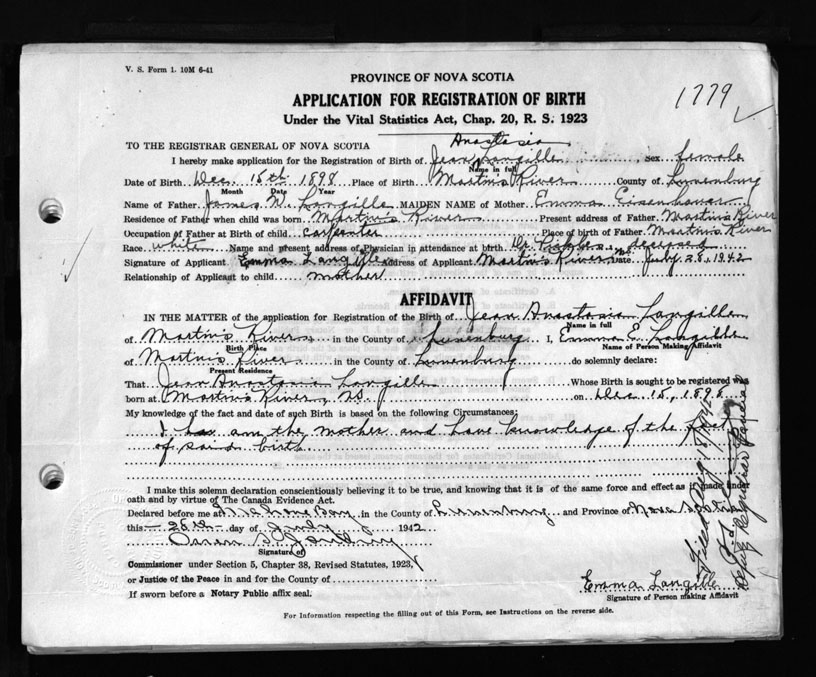 V. S. Form 1. 10M 6-41
PROVINCE OF NOVA SCOTIA
APPLICATION FOR REGISTRATION OF BIRTH
Under the Vital Statistics Act, Chap. 20, R. S. 1923
1779
TO THE REGISTRAR GENERAL OF NOVA SCOTIA
Anastasia
I hereby make application for the Registration of Birth of Jean Langille Sex female
Name in full
Date of Birth Dec. 15th 1898 Place of Birth Martin's River County of Lunenburg
Month Date Year
Name of Father James W. Langille MAIDEN NAME of Mother Emma Eisenhauer
Residence of Father when child was born Martin's River Present address of Father Martin's River
Occupation of Father at Birth of child carpenter Place of birth of Father Martin's River
Race white Name and present address of Physician in attendance at birth Dr. deceased
Signature of Applicant Emma Langille Address of Applicant Martin's River Date July 28, 1942
Relationship of Applicant to child mother
AFFIDAVIT
IN THE MATTER of the application for Registration of the Birth of Jean Anastasia Langille
Name in full
of Martin's River in the County of Lunenburg I, Emma E. Langille
Birth Place Name of Person Making Affidavit
of Martin's River in the County of Lunenburg do solemnly declare:
Present Residence
That Jean Anastasia Langille Whose Birth is sought to be registered was
born at Martin's River, N.S. on Dec 15, 1898
My knowledge of the fact and date of such Birth is based on the following Circumstances:
I am the mother and have knowledge of the fact
of said birth
I make this solemn declaration conscientiously believing it to be true, and knowing that it is of the same force and effect as if made under
oath and by virtue of The Canada Evidence Act.
Declared before me at Mahone Bay in the County of Lunenburg and Province of Nova Scotia
this 28th day of July 1942
Signature of
Commissioner under Section 5, Chapter 38, Revised Statutes, 1923,
or Justice of the Peace in and for the County of
If sworn before a Notary Public affix seal.
Emma Langille
Signature of Person making Affidavit
For Information respecting the filling out of this Form, see Instructions on the reverse side.
Filed Aug
Deputy Registrar General